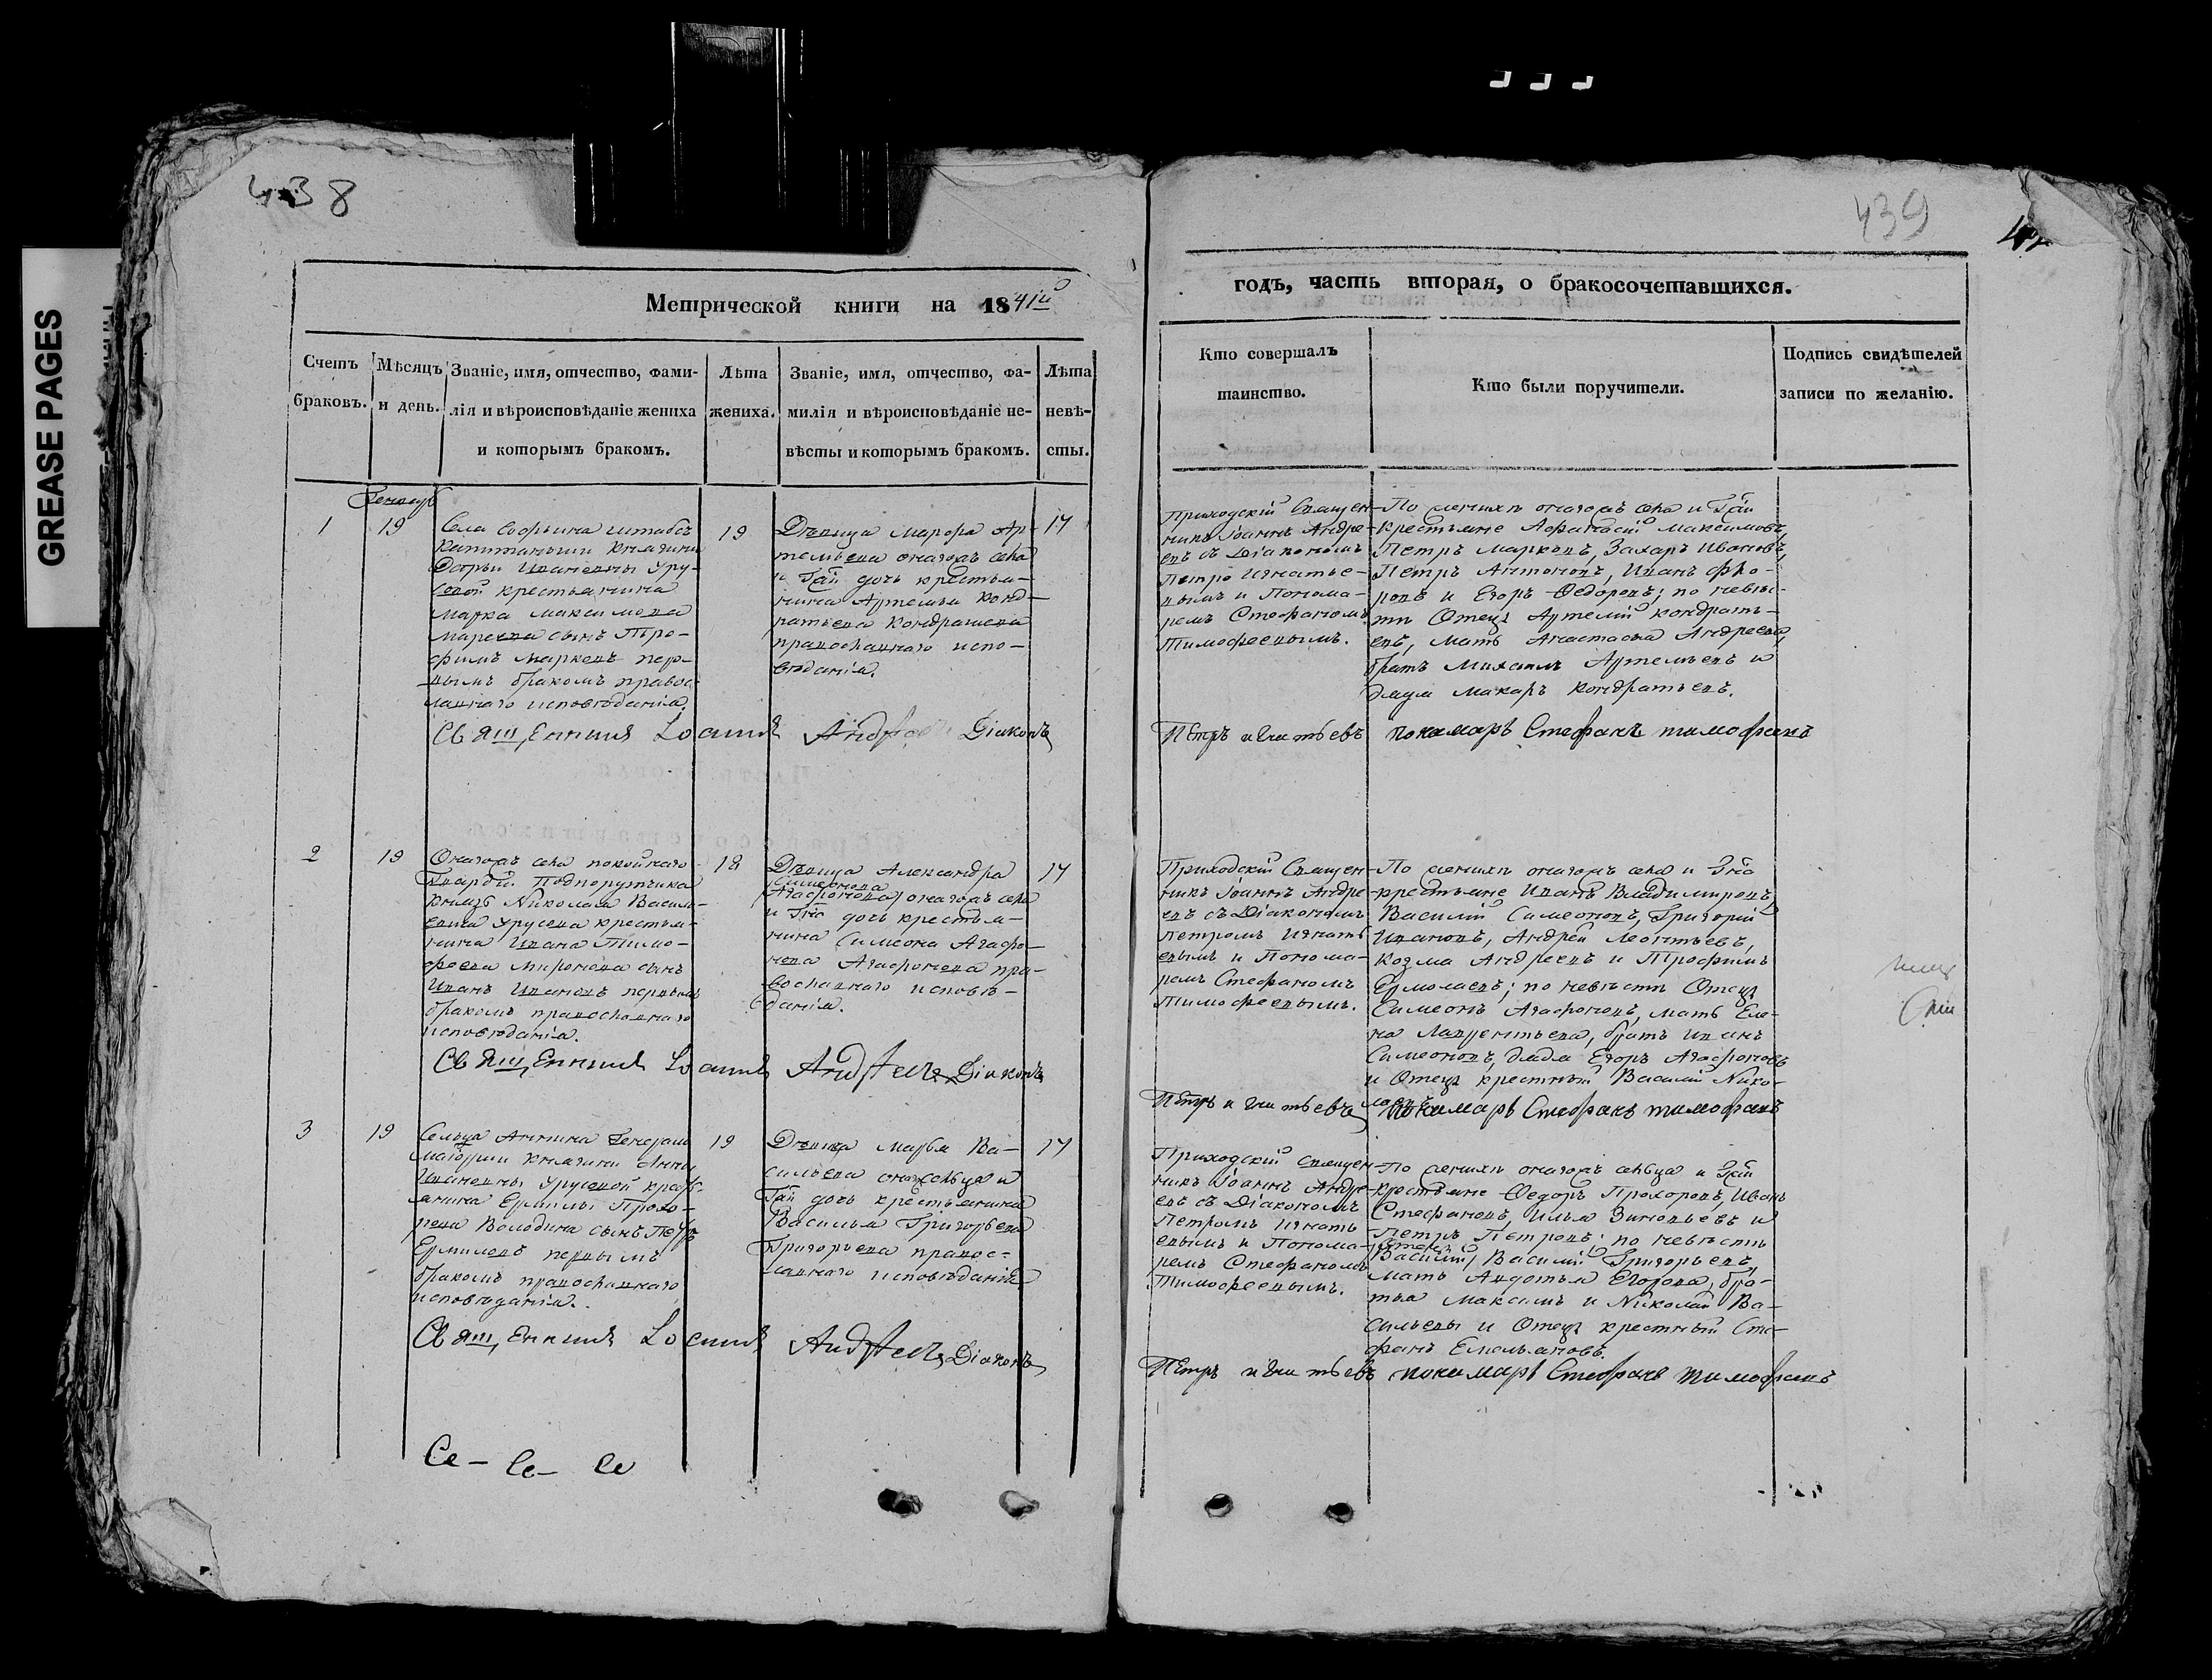 GREASE PAGES
438
439
Метрической книги на 1841й
годъ, часть вторая, о бракосочетавшихся.
Счетъ браковъ.
Мѣсяцъ и день.
Званіе, имя, отчество, фами-
лія и вѣроисповѣданіе жениха
и которымъ бракомъ.
Лѣта
жениха.
Званіе, имя, отчество, фа-
милія и вѣроисповѣданіе не-
вѣсты и которымъ бракомъ.
Лѣта
невѣ-
сты.
Кто совершалъ
таинство.
Кто были поручители.
Подпись свидѣтелей
записи по желанію.
Генварь
1
19
Села Софьина штабсъ
Капитанши Княгини
Дарьи Ивановны Уру-
совой крестьянина
Марка Максимова
Маркова сынъ Тро-
фимъ Марковъ пер-
вымъ бракомъ правос
лавнаго исповѣданія.
19
Дѣвица Марфа Ар-
темьева онагожъ села
и Гжи дочь крестья-
нина Артемья Конд-
ратьева Кондрашева
православнаго испо-
вѣданія.
17
Приходскій Священ-
никъ Іоаннъ Андре-
евъ съ Діакономъ
Петро Игнатье-
вымъ и Понома-
ремъ Стефаномъ
Тимофеевымъ.
По женихѣ онагожъ села и Гжи
крестьяне Афанасій Максимовъ,
Петръ Марковъ, Захаръ Ивановъ,
Петръ Антоновъ, Иванъ Фро-
ловъ и Егоръ Ѳедоровъ; по невѣс-
тѣ Отецъ Артемій Кондрать-
евъ, мать Анастасья Андреева,
братъ Михаилъ Артемьевъ и
дядя Макаръ Кондратьевъ.
Священникъ Іоаннъ Андреевъ Діаконъ
Петръ Игнатьевъ пономарь Стефанъ Тимофеевъ
2
19
Онагожъ села покойнаго
Гвардіи Подпорутчика
Князь Николая Василь-
евича Урусова крестья-
нина Ивана Тимо-
феева Миронова сынъ
Иванъ Ивановъ первымъ
бракомъ православнаго
исповѣданія.
18
Дѣвица Александра
Симеонова
(Агафонова) онагожъ села
и Гна дочь крестья-
нина Симеона Агафо-
нова Агафонова пра-
вославнаго исповѣ-
данія.
17
Приходскій Священ-
никъ Іоаннъ Андре
евъ съ Діакономъ
Петромъ Игнать
евымъ и Понома-
ремъ Стефаномъ
Тимофеевымъ.
По женихѣ онагожъ села и Гна
крестьяне Иванъ Владимировъ,
Василій Симеоновъ, Григорій
Ивановъ, Андрей Леонтьевъ,
Козма Андреевъ и Трофимъ
Ермолаевъ; по невѣстѣ Отецъ
Симеонъ Агафоновъ, мать Еле-
на Лаврентьева, братъ Иванъ
Симеоновъ, дядя Егоръ Агафоновъ
и Отецъ крестный Василій Нико-
лаевъ
Священникъ Іоаннъ Андреевъ Діаконъ
Петръ Игнатьевъ пономарь Стефанъ Тимофеевъ
3
19
Сельца Аннина Генералъ
Маіорши Княгини Анны
Ивановны Урусовой крест-
янина Ермилы Прохо-
рова Володина сынъ Петръ
Ермиловъ первымъ
бракомъ православнаго
исповѣданія.
19
Дѣвица Марья Ва-
сильева онагожъ сельца и
Гжи дочь крестьянина
Василья Григорьева
Григорьева правос-
лавнаго исповѣданія
17
Приходскій Священ-
никъ Іоаннъ Андре
евъ съ Діакономъ
Петромъ Игнать
евымъ и Понома-
ремъ Стефаномъ
Тимофеевымъ.
По женихѣ онагожъ сельца и Гжи
крестьяне Ѳедоръ Прохоровъ, Иванъ
Стефановъ, Илья Зиновьевъ и
Петръ Петровъ; по невѣстѣ
(Василій) Василій Григорьевъ,
мать Авдотья Егорова, бра-
тья Максимъ и Николай Ва-
сильевы и Отецъ крестный Сте-
фанъ Емельяновъ.
Священникъ Іоаннъ Андреевъ Діаконъ
Петръ Игнатьевъ пономарь Стефанъ Тимофеевъ